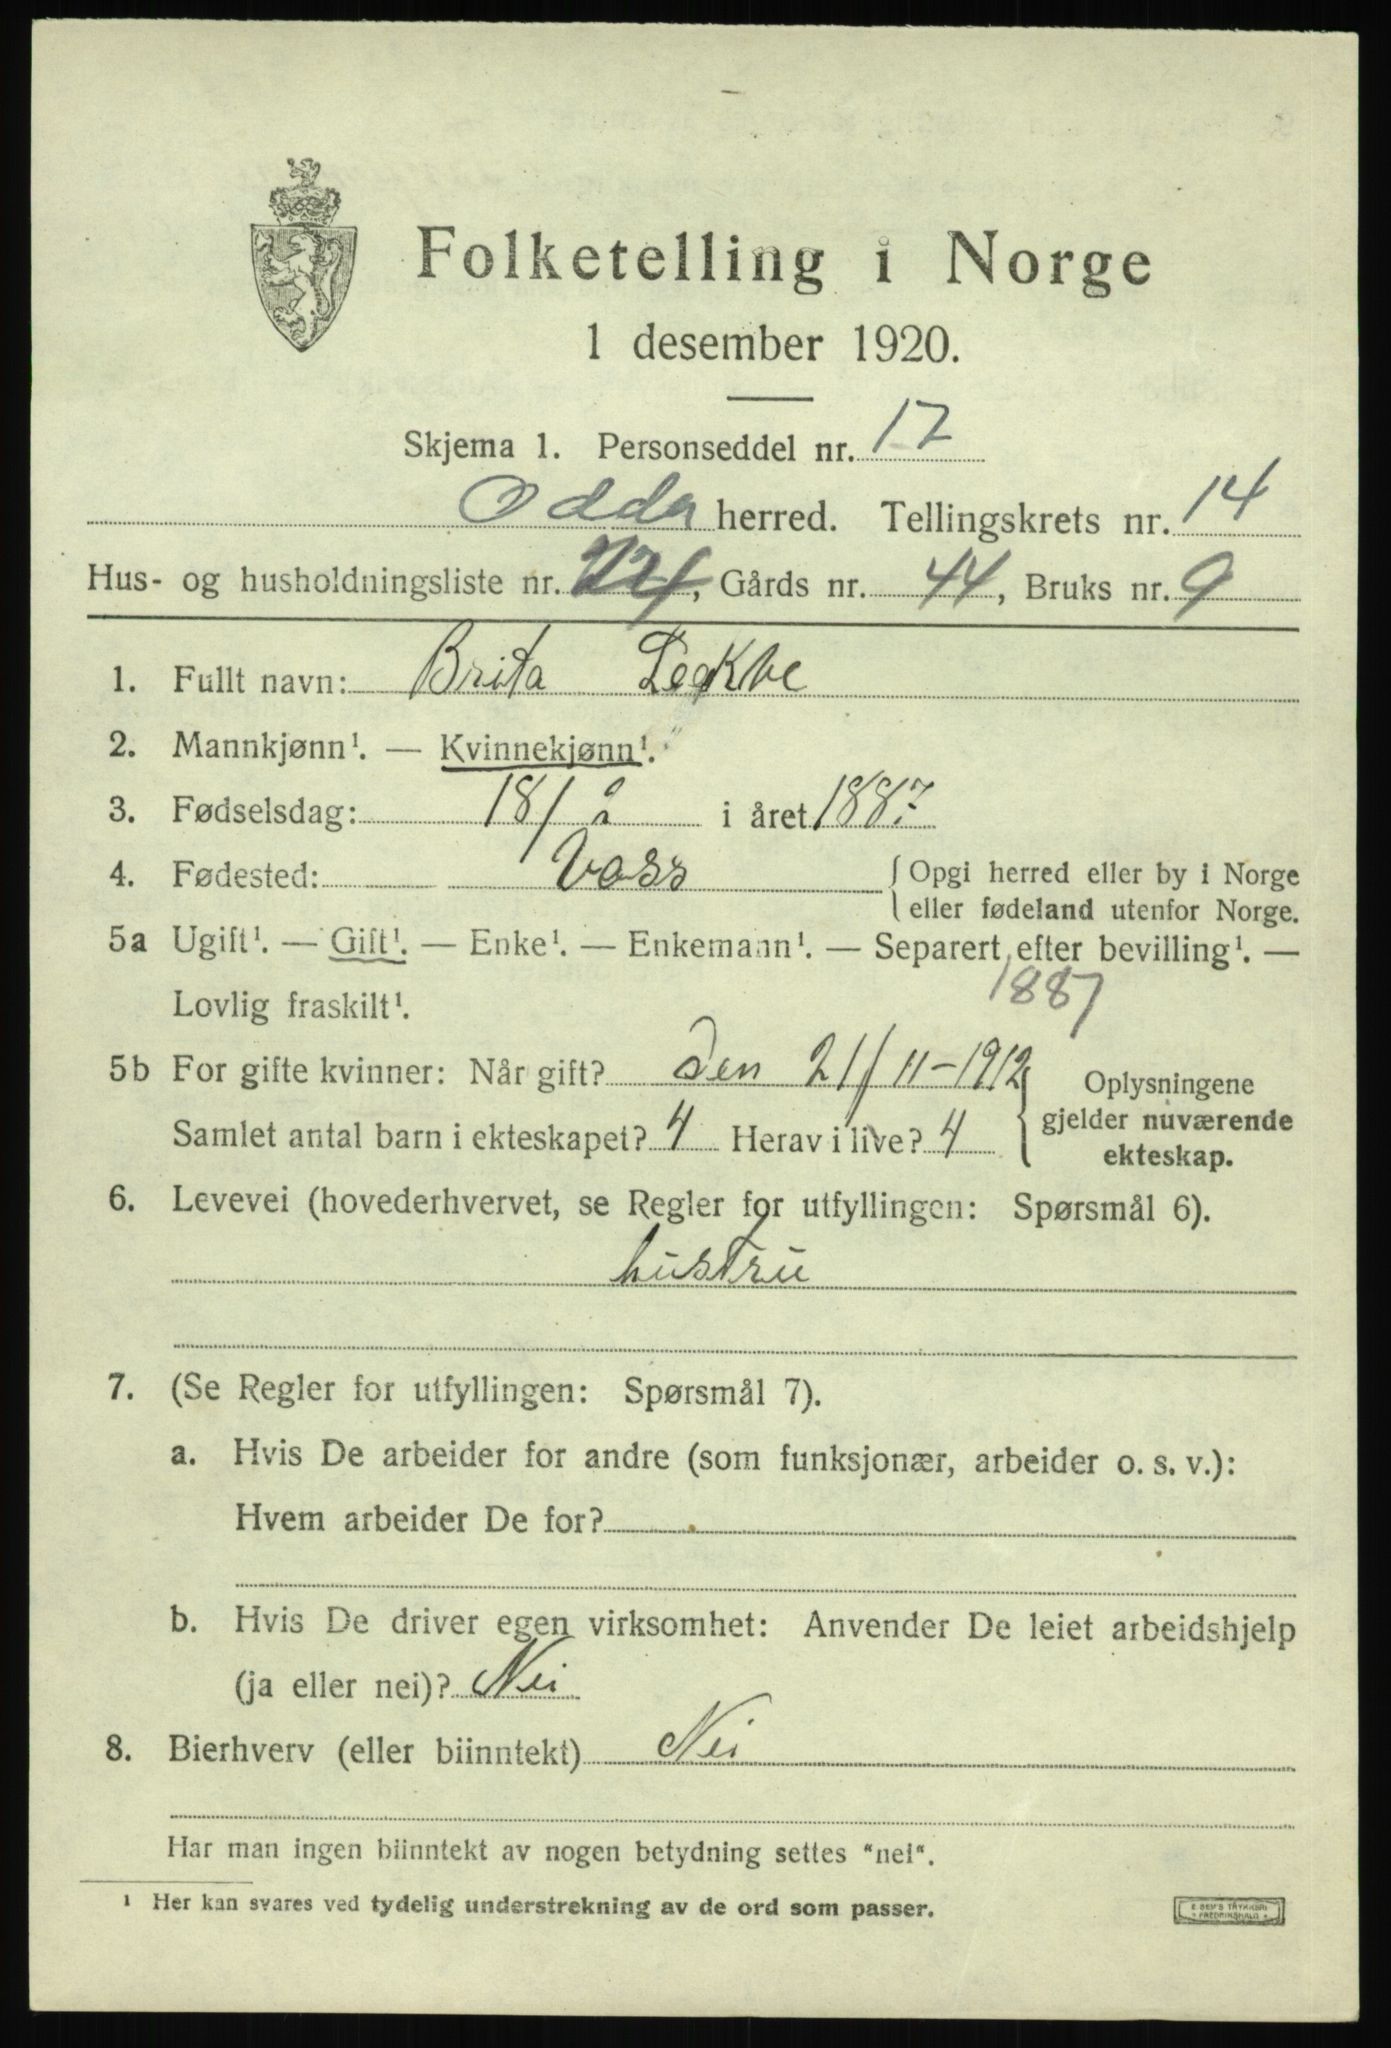 Folketelling i Norge
1 desember 1920.
Skjema 1. Personseddel nr. 17
Odda herred. Tellingskrets nr. 14
Hus- og husholdningsliste nr. , Gårds nr. 44, Bruks nr. 9
1. Fullt navn: Brita Lekve
2. Mannkjønn¹. — Kvinnekjønn¹.
3. Fødselsdag: 18/ i året 1887
4. Fødested: Voss { Opgi herred eller by i Norge
eller fødeland utenfor Norge.
5a Ugift¹. — Gift¹. — Enke¹. — Enkemann¹. — Separert efter bevilling¹. —
Lovlig fraskilt¹. 1887
5b For gifte kvinner: Når gift? den 21/11-1912 } Oplysningene
Samlet antal barn i ekteskapet? 4 Herav i live? 4 gjelder nuværende
ekteskap.
6. Levevei (hovederhvervet, se Regler for utfyllingen: Spørsmål 6).
hustru
7. (Se Regler for utfyllingen: Spørsmål 7).
a. Hvis De arbeider for andre (som funksjonær, arbeider o. s. v.):
Hvem arbeider De for?
b. Hvis De driver egen virksomhet: Anvender De leiet arbeidshjelp
(ja eller nei)? Nei
8. Bierhverv (eller biinntekt) Nei
Har man ingen biinntekt av nogen betydning settes "nei".
¹ Her kan svares ved tydelig understrekning av de ord som passer.
E. SEM'S TRYKKERI
FREDRIKSHALD